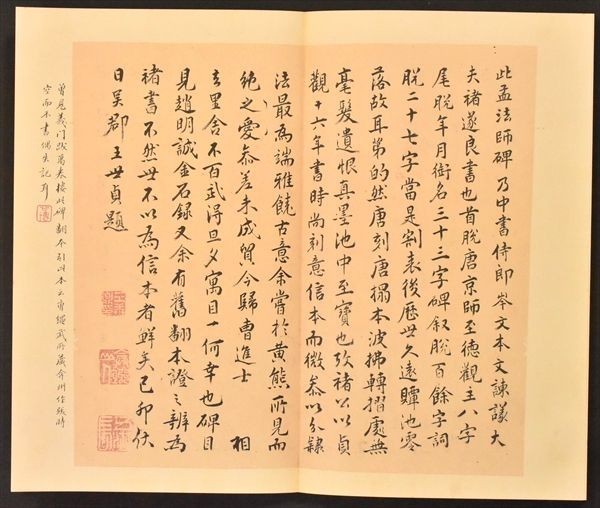 此孟法師碑乃中書侍郎岑文本文諫議大
夫褚遂良書也首脫唐京師至德觀主八字
尾脫年月銜名三十三字碑叙脫百餘字詞
脫二十七字當是割表後歷世久遠贉池零
落故耳第的然唐刻唐搨本波拂轉摺處無
毫髮遺恨真墨池中至寶也攷褚公以貞
觀十六年書時尚刻意信本而微叅以分隸
法最為端雅饒古意余嘗於黃熊所見而
絶之愛叅差未成貿今歸曹進士 相
去里舍不百武得旦夕寓目一何幸也碑目
見趙明誠金石錄又余有舊翻本證之辨為
褚書不然世不以為信本者鮮矣己卯伏
日吳郡王世貞題
曾見義門跋此碑翻本引此本云曹繩武所藏弇州作跋時
空而不書偶失記耳